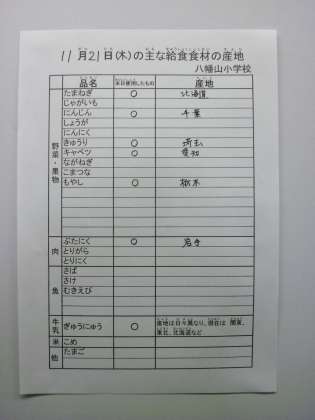 11月21日(木)の主な給食食材の産地
八幡山小学校
品名 本日使用したもの 産地
野菜・果物
たまねぎ ○ 北海道
じゃがいも
にんじん ○ 千葉
しょうが
にんにく
きゅうり ○ 埼玉
キャベツ ○ 愛知
ながねぎ
こまつな
もやし ○ 栃木
肉
ぶたにく ○ 岩手
とりがら
とりにく
魚
さば
さけ
むきえび
牛乳 ぎゅうにゅう ○ 産地は日々異なり、現在は 関東、
東北、北海道など
米 こめ
他 たまご